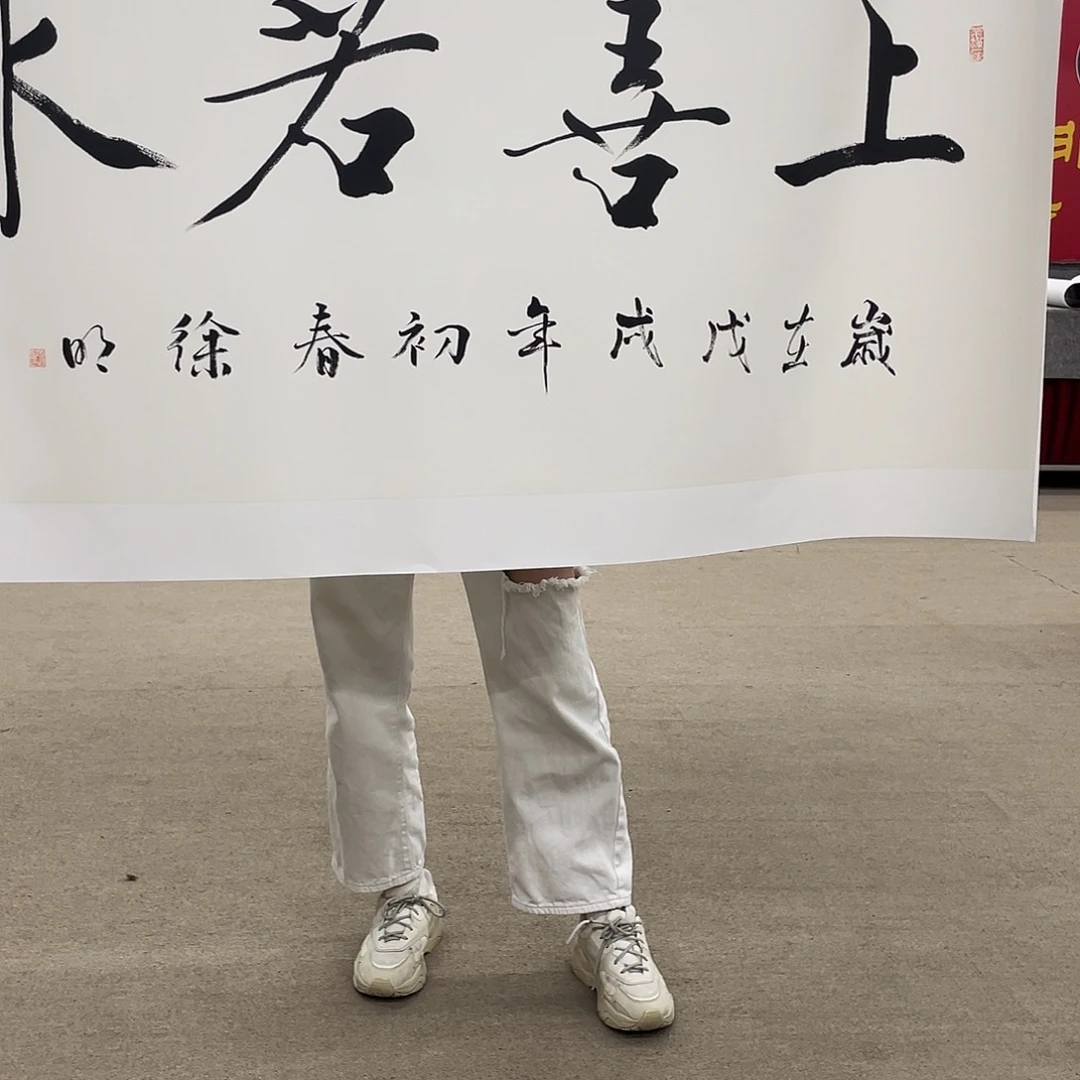 上善若水
歲在戊戌年初春徐明